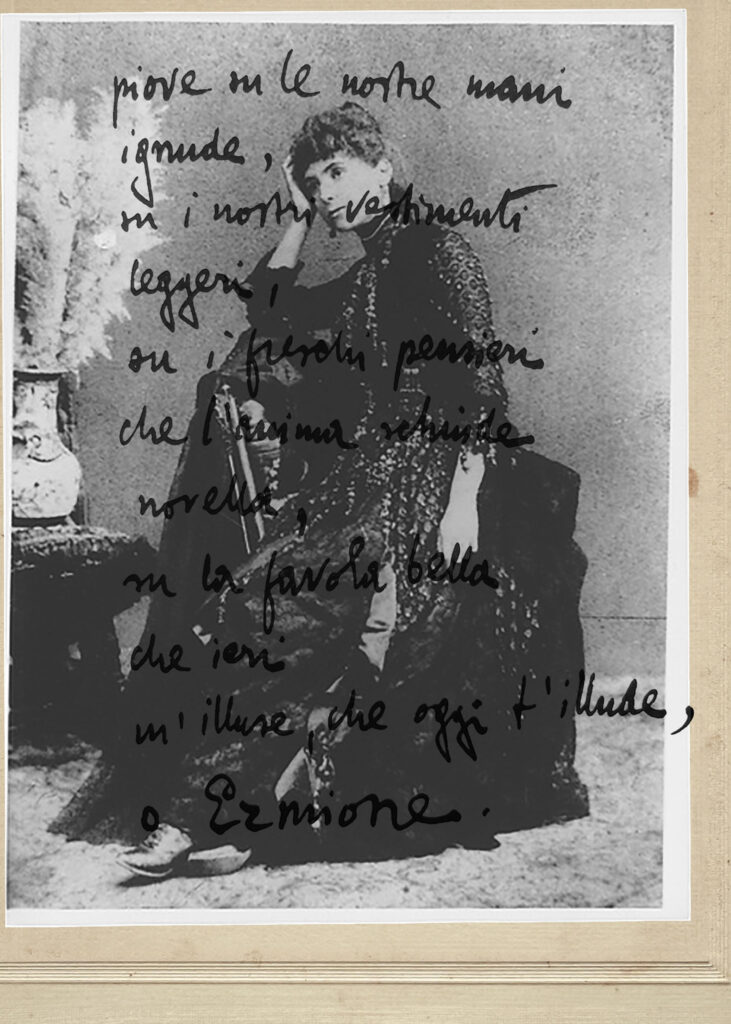 piove su le nostre mani
ignude,
su i nostri vestimenti
leggeri,
su i freschi pensieri
che l'anima schiude
novella,
su la favola bella
che ieri
m'illuse, che oggi t'illude,
o Ermione.